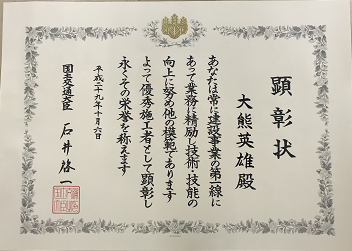 顕彰状
大熊英雄殿
あなたは常に建設事業の第一線に
あって業務に精励し技術・技能の
向上に努め他の模範であります
よって優秀施工者として顕彰し
永くその栄誉を称えます
平成二十八年十月六日
国土交通大臣 石井啓一